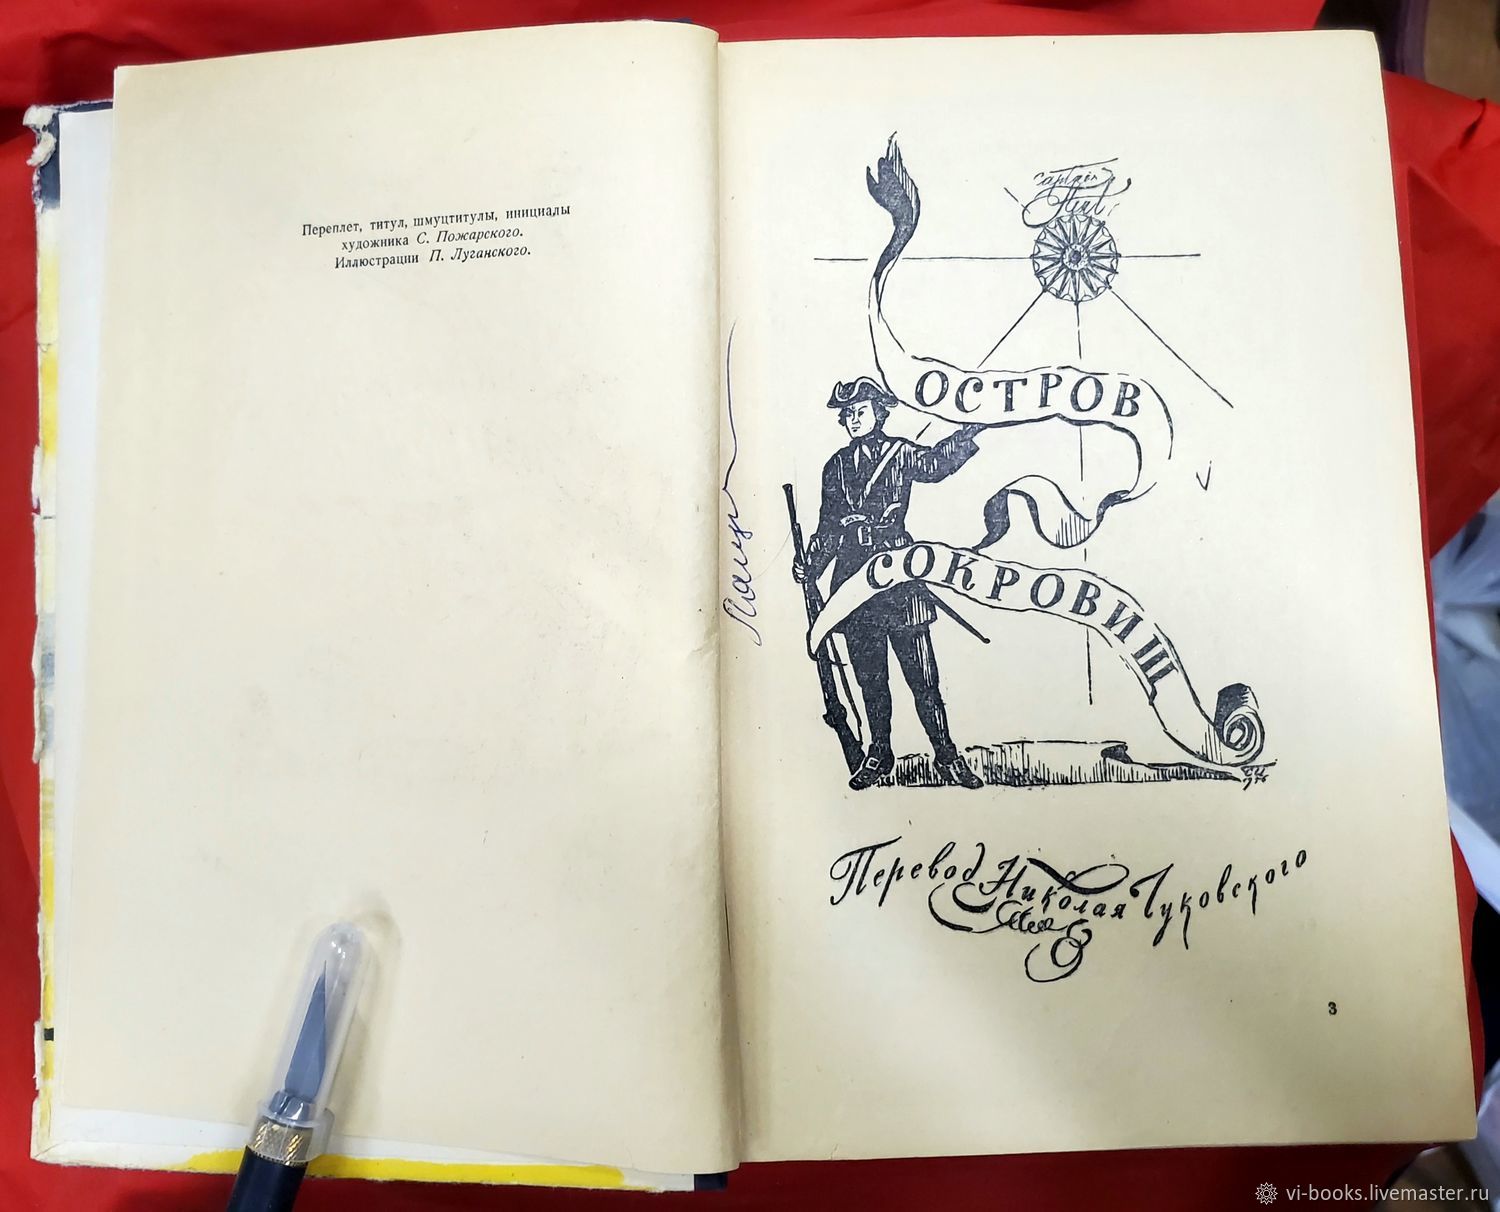 Переплет, титул, шмуцтитулы, инициалы
художника С. Пожарского.
Иллюстрации П. Луганского.
Captain
Flint
ОСТРОВ
СОКРОВИЩ
Перевод Николая Чуковского
3
vi-books.livemaster.ru